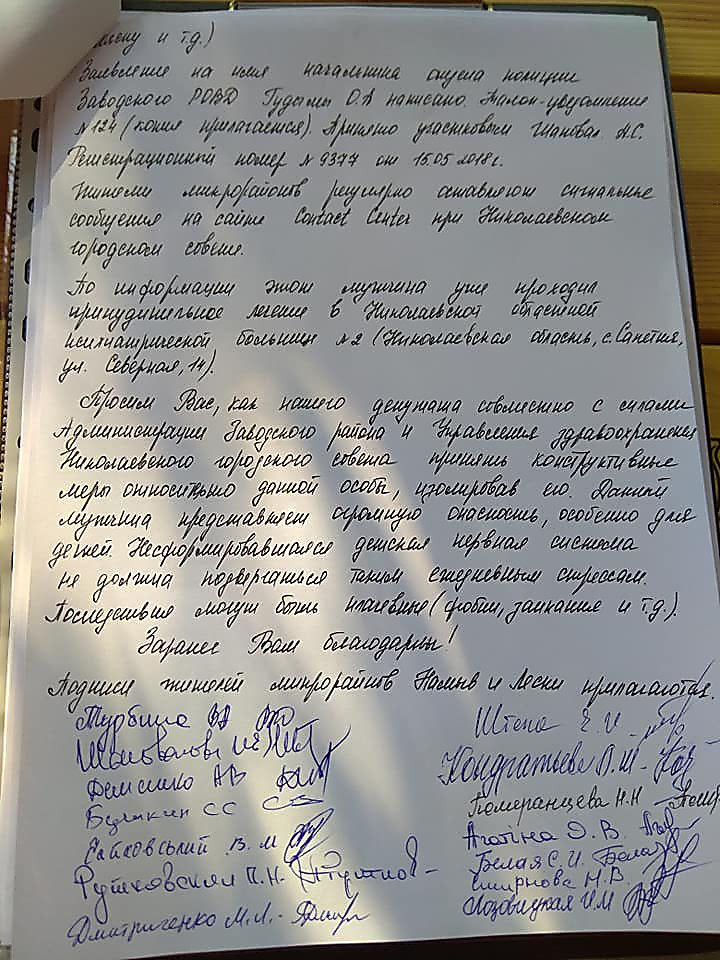 и т.д.)
Заявление на имя начальника отдела полиции
Заводского РОВД Гудымы О.А написано. Талон-уведомление
№124 (копия прилагается). Принято участковым Шаповал. Н.С.
Регистрационный номер №9377 от 15.05.2018г.
Жители микрорайонов регулярно оставляют сигнальные
сообщения на сайте Contact Center при Николаевском
городском совете.
По информации этот мужчина уже проходил
принудительное лечение в Николаевской областной
психиатрической больнице №2 (Николаевская область, с.
ул. Северная, 14).
Просим Вас, как нашего депутата совместно с силами
Администрации Заводского района и Управления здравоохранения
Николаевского городского совета принять конструктивные
меры относительно данной особы, изолировав его. Данный
мужчина представляет огромную опасность, особенно для
детей. Несформировавшаяся детская нервная система
не должна подвергаться таким ежедневным стрессам.
Последствия могут быть плачевные (фобии, заикания и т.д.).
Заранее Вам благодарны!
Подписи жителей микрорайнов Намыв и Лески прилагаются.
Турбина
Штепа Е.И.
Шаповалова
Кондратьева Л.М.
Демченко АВ
Померанцева Н.Н
Булякин СС
Агапіна О.В.
В.М
Белая С.И.
Рутковская П.Н.
Смирнова Н.В.
Дмитриченко М.Л.
Лозовицкая И.М